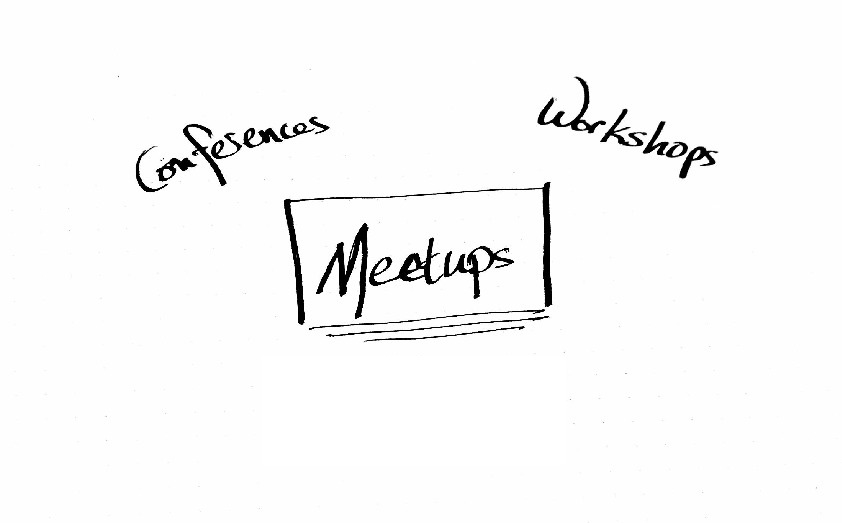 Conferences
Workshops
Meetups